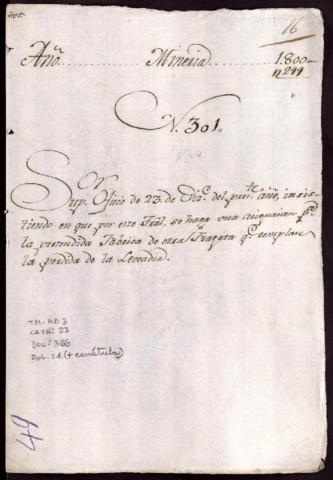 16
Año. Mineria 1.800
n 211
N. 301.
Sor
Sup. Ofisio de 23 de Dize. del prste. año, insis-
tiendo en que por este Tral, se haga una asignacion pa.
la pretendida Fabrica de otra Fragata qe. remplase
la perdida de la Leocadia.
TM-AD 3
CAJA: 23
DOC: 366
fol: 21 (+ carátula)
49